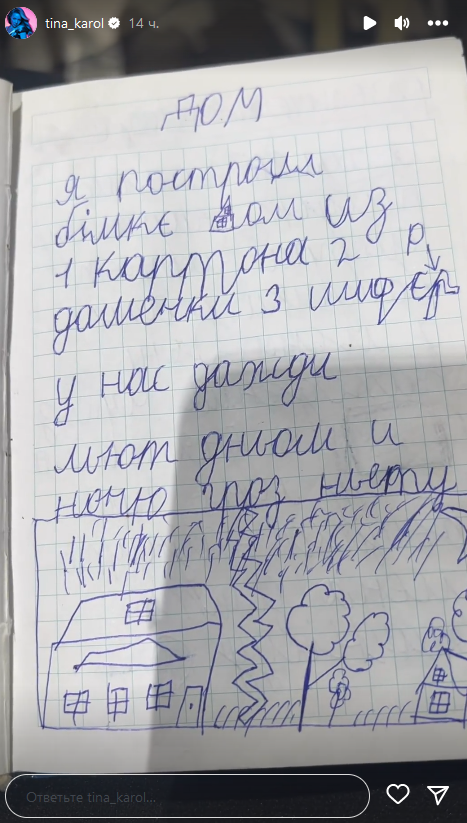 tina_karol 14 ч.
ДОМ
я построил
бімкє дом из
1 картона 2 р
дощечки 3 шифєр
у нас дажди
льют дньом и
ночю гроз ньету
Ответьте tina_karol...